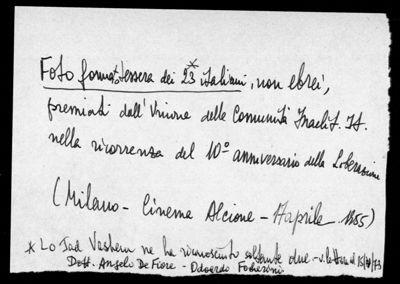 Foto formato tessera dei 23* italiani, non ebrei,
premiati dall'Unione delle Comunità Israelit. It.
nella ricorrenza del 10° anniversario della Liberazione
(Milano - Cinema Alcione - Aprile 1955)
* Lo Iad Vashem ne ha riconosciuto soltanto due - v. lettera
Dott. Angelo De Fiore - Odoardo Focherini